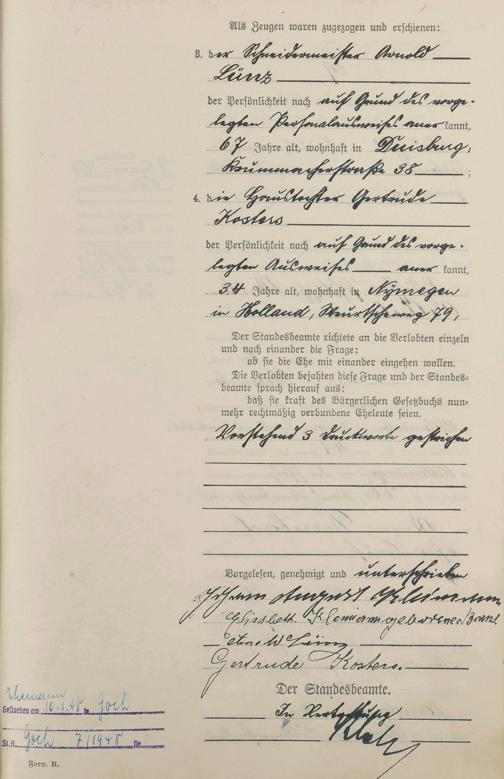 Als Zeugen waren zugezogen und erschienen:
3. der Schneidermeister Arnold
Lünz
der Persönlichkeit nach auf Grund des vorge-
legten Personalausweises aner kannt,
67 Jahre alt, wohnhaft in Duisburg,
Krummacherstraße 38 ;
4. die Haustochter Gertrude
Kosters
der Persönlichkeit nach auf Grund des vorge-
legten Ausweises aner kannt,
34 Jahre alt, wohnhaft in Nymegen
in Holland, Weurtscheweg 79,
Der Standesbeamte richtete an die Verlobten einzeln
und nach einander die Frage:
ob sie die Ehe mit einander eingehen wollen.
Die Verlobten bejahten diese Frage und der Standes-
beamte sprach hierauf aus:
daß sie kraft des Bürgerlichen Gesetzbuchs nun-
mehr rechtmäßig verbundene Eheleute seien.
Vorstehend 3 Druckworte gestrichen
Vorgelesen, genehmigt und unterschrieben
Johann August
Elisabeth geborene
Arnold Lünz
Gertrude Kosters.
Der Standesbeamte.
In Vertretung
Ehemann
Gestorben am 10.1.48 in Goch
St.A. Goch 7/1948 Nr
Form. B.